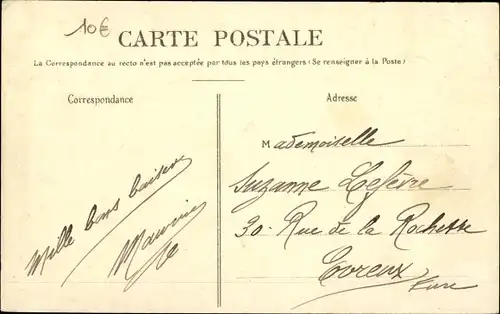 10€
CARTE POSTALE
La Correspondance au recto n'est pas acceptée par tous les pays étrangers (Se renseigner à la Poste)
Correspondance
Adresse
Mille bons baisers
Maurice
Mademoiselle
Suzanne Lefèvre
30. Rue de la Rochette
Evreux
Eure